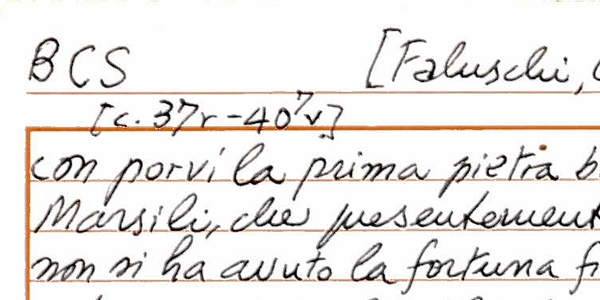 BCS [Faluschi,
[c. 37r-40⁷v]
con porvi la prima pietra b
Marsili, che presentement
non si ha avuto la fortuna fi